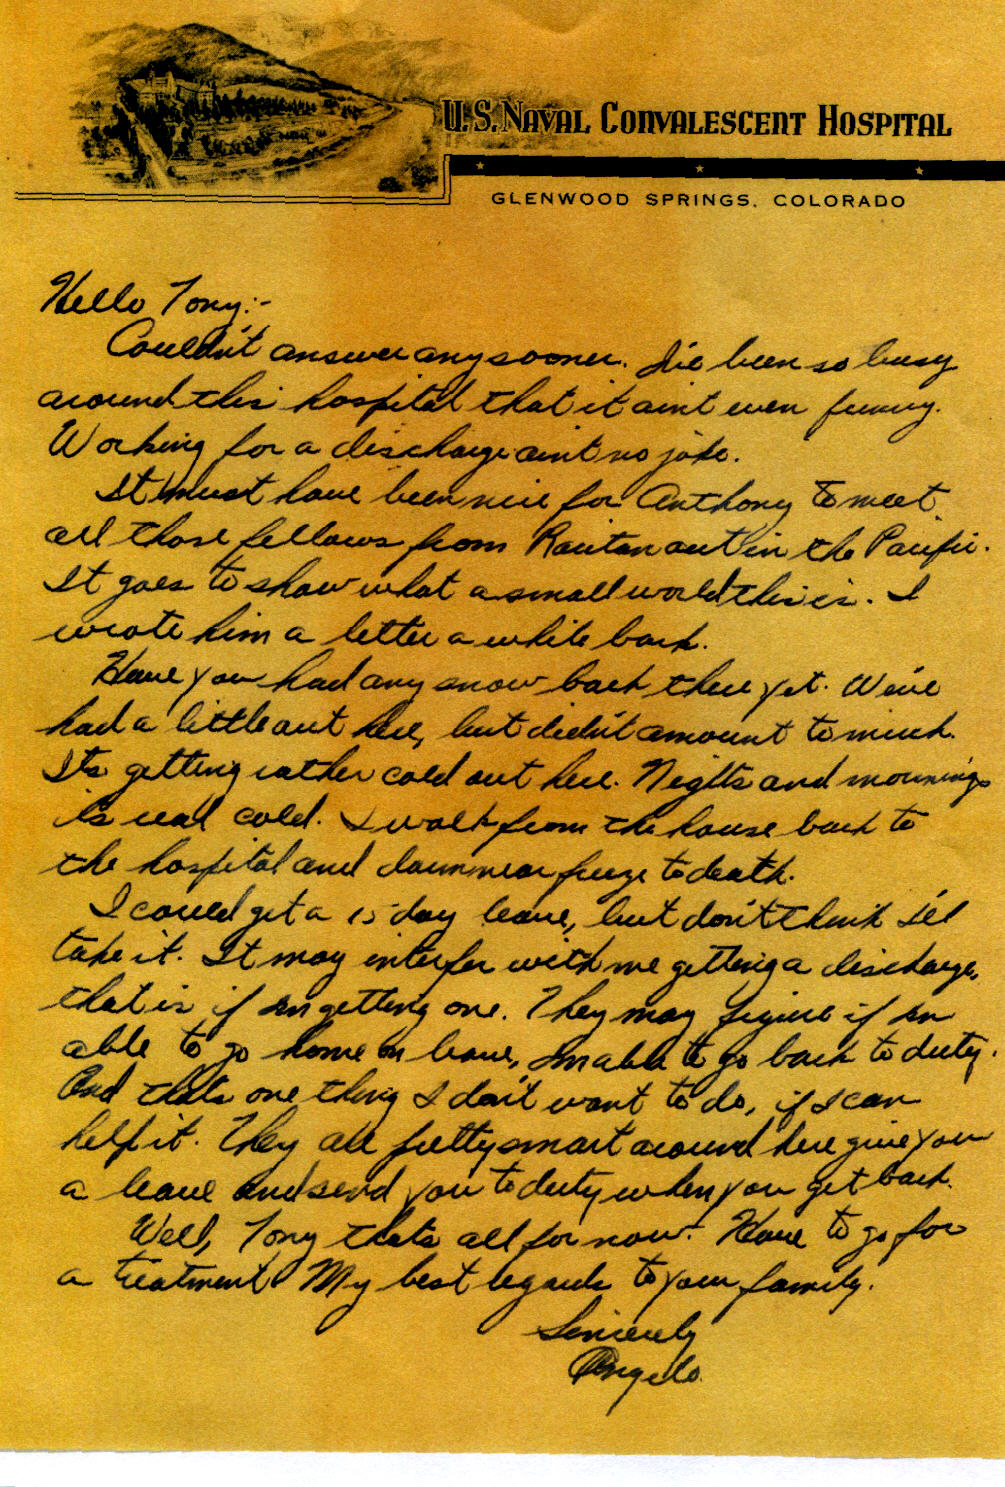 U.S. NAVAL CONVALESCENT HOSPITAL
GLENWOOD SPRINGS, COLORADO
Hello Tony:-
Couldn't answer any sooner. I've been so busy
around this hospital that it aint even funny.
Working for a discharge aint no joke.
It must have been nice for Anthony to meet
all those fellows from Raritan out in the Pacific.
It goes to show what a small world this is. I
wrote him a letter a while back.
Have you had any snow back there yet. We've
had a little out here, but didn't amount to much.
Its getting rather cold out here. Nights and mornings
is real cold. I walk from the house back to
the hospital and damn near freeze to death.
I could get a 15 day leave, but don't think I'll
take it. It may interfer with me getting a discharge,
that is if Im getting one. They may figure if Im
able to go home on leave, Im able to go back to duty.
And thats one thing I don't want to do, if I can
help it. They are pretty smart around here give you
a leave and send you to duty when you get back.
Well, Tony thats all for now. Have to go for
a treatment My best regards to your family.
Sincerely
Angelo.